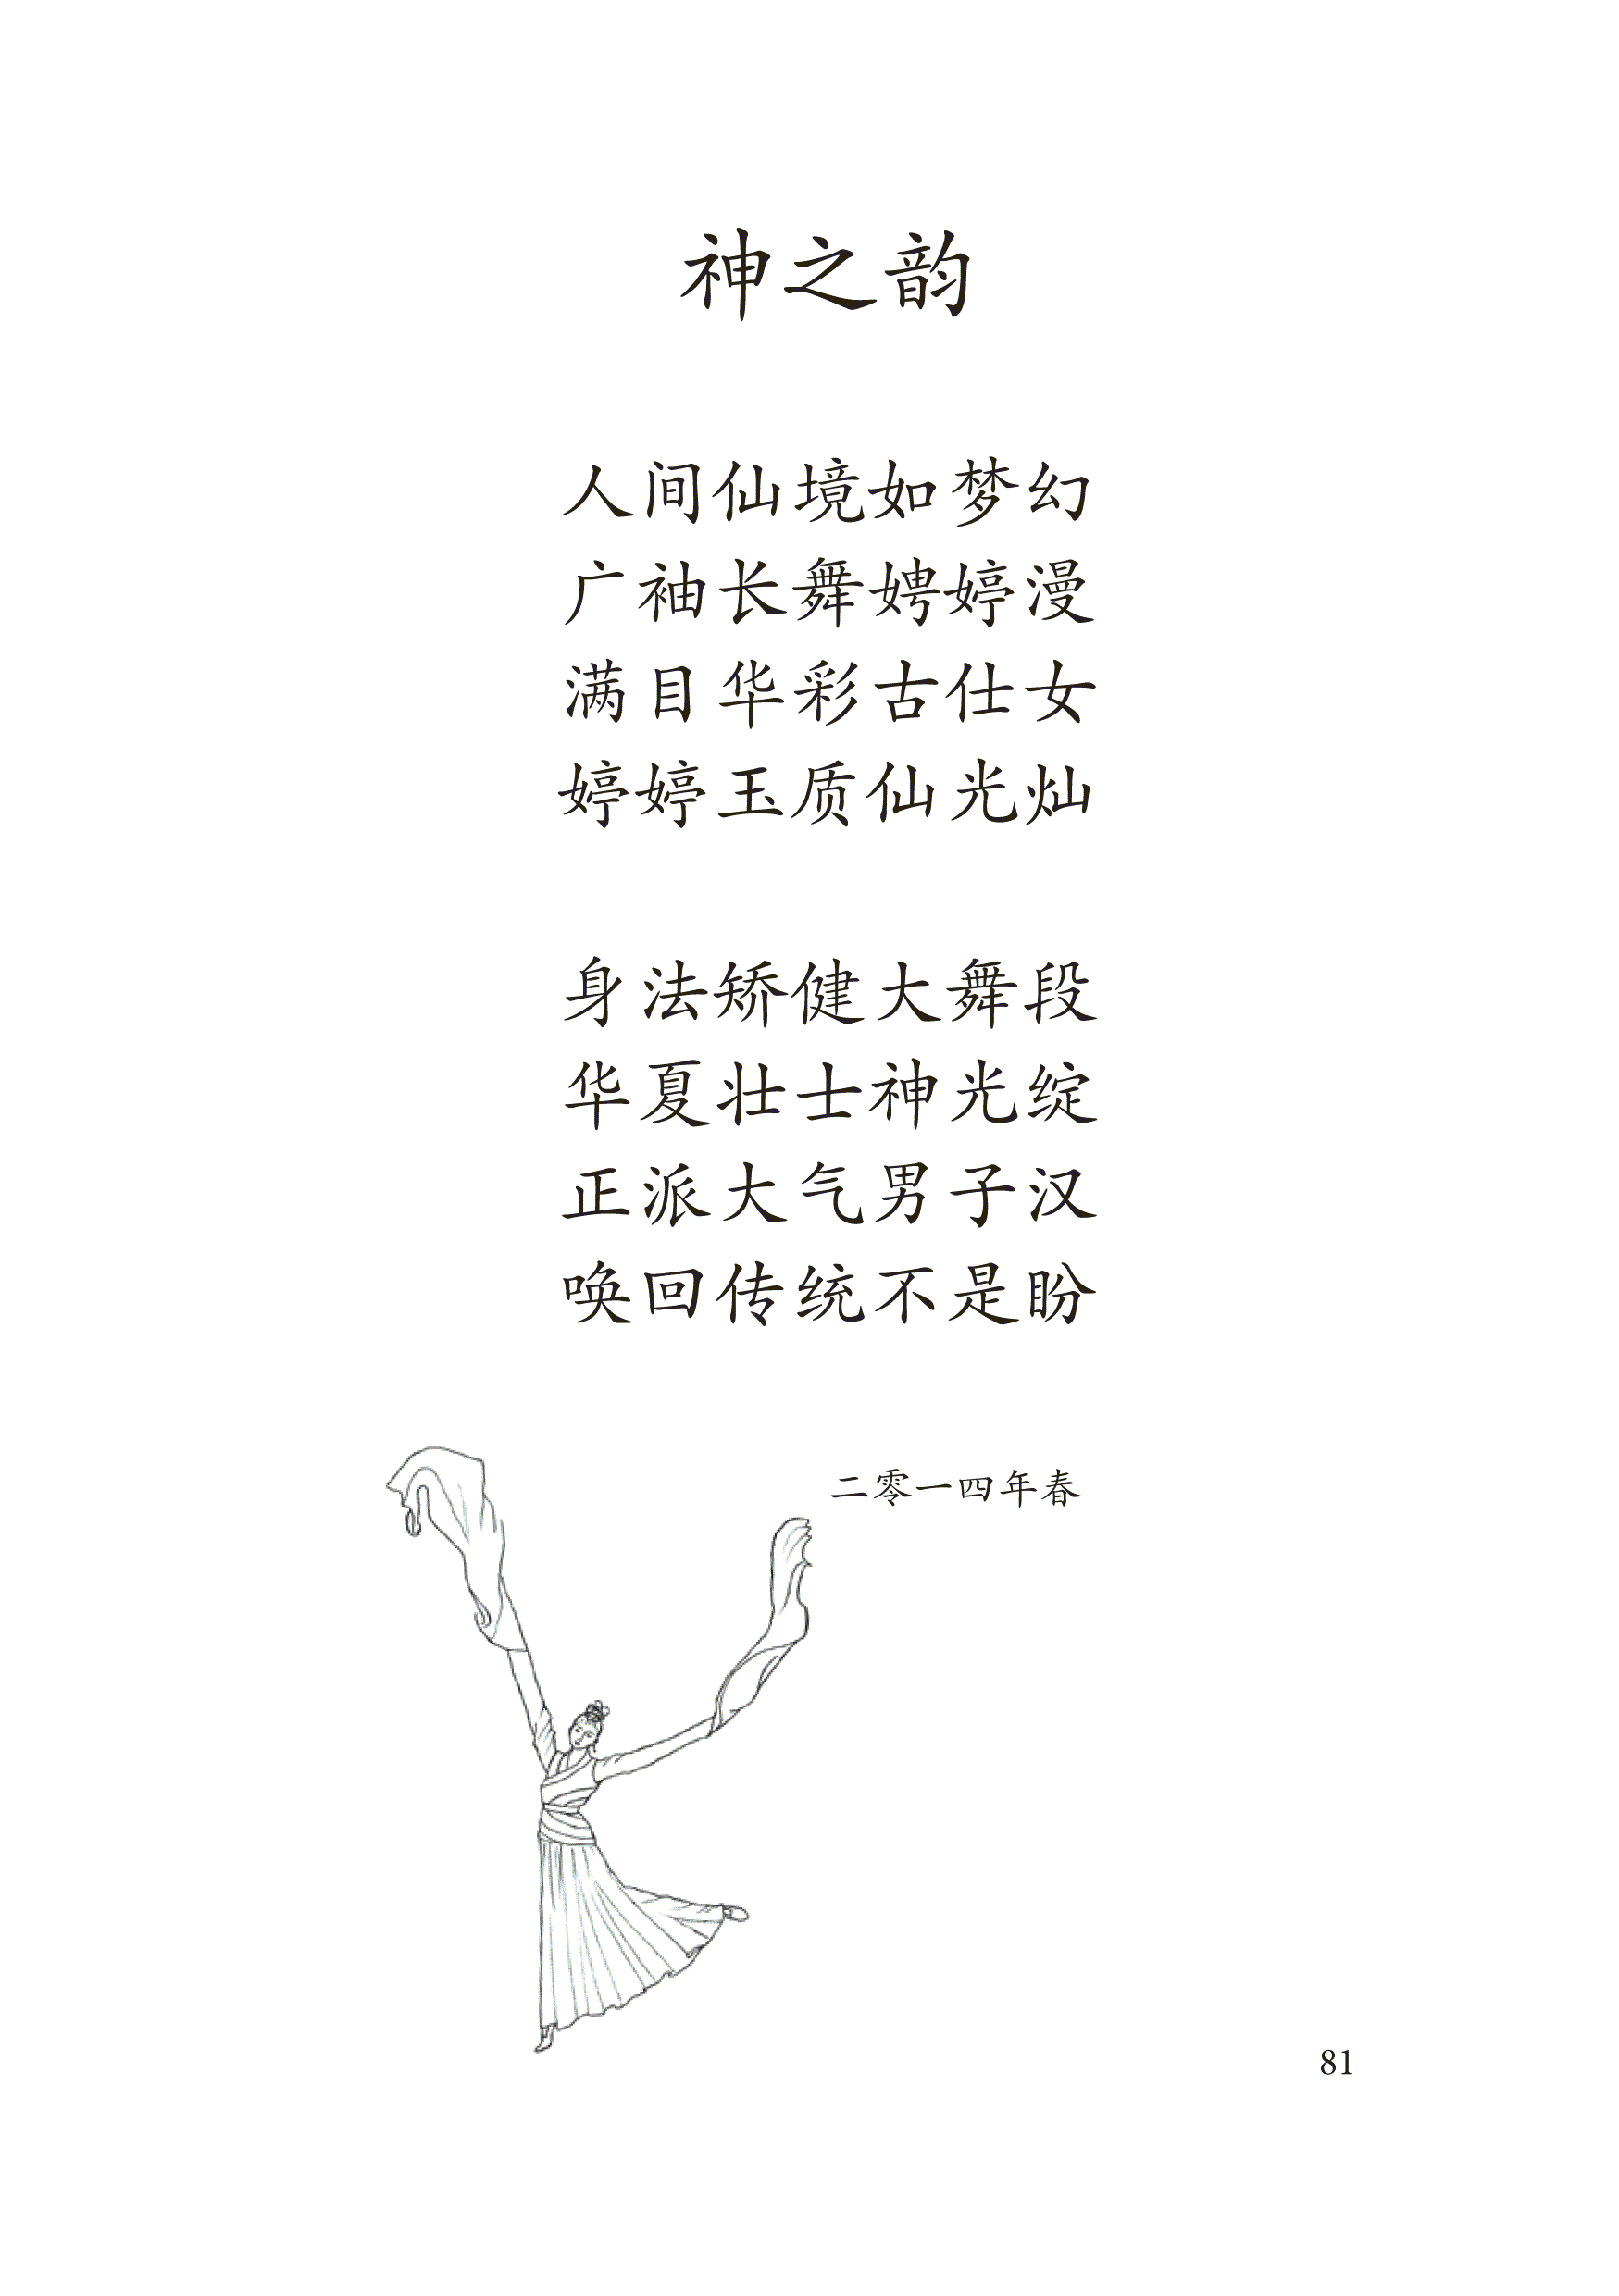 神之韵
人间仙境如梦幻
广袖长舞娉婷漫
满目华彩古仕女
婷婷玉质仙光灿
身法矫健大舞段
华夏壮士神光绽
正派大气男子汉
唤回传统不是盼
二零一四年春
81